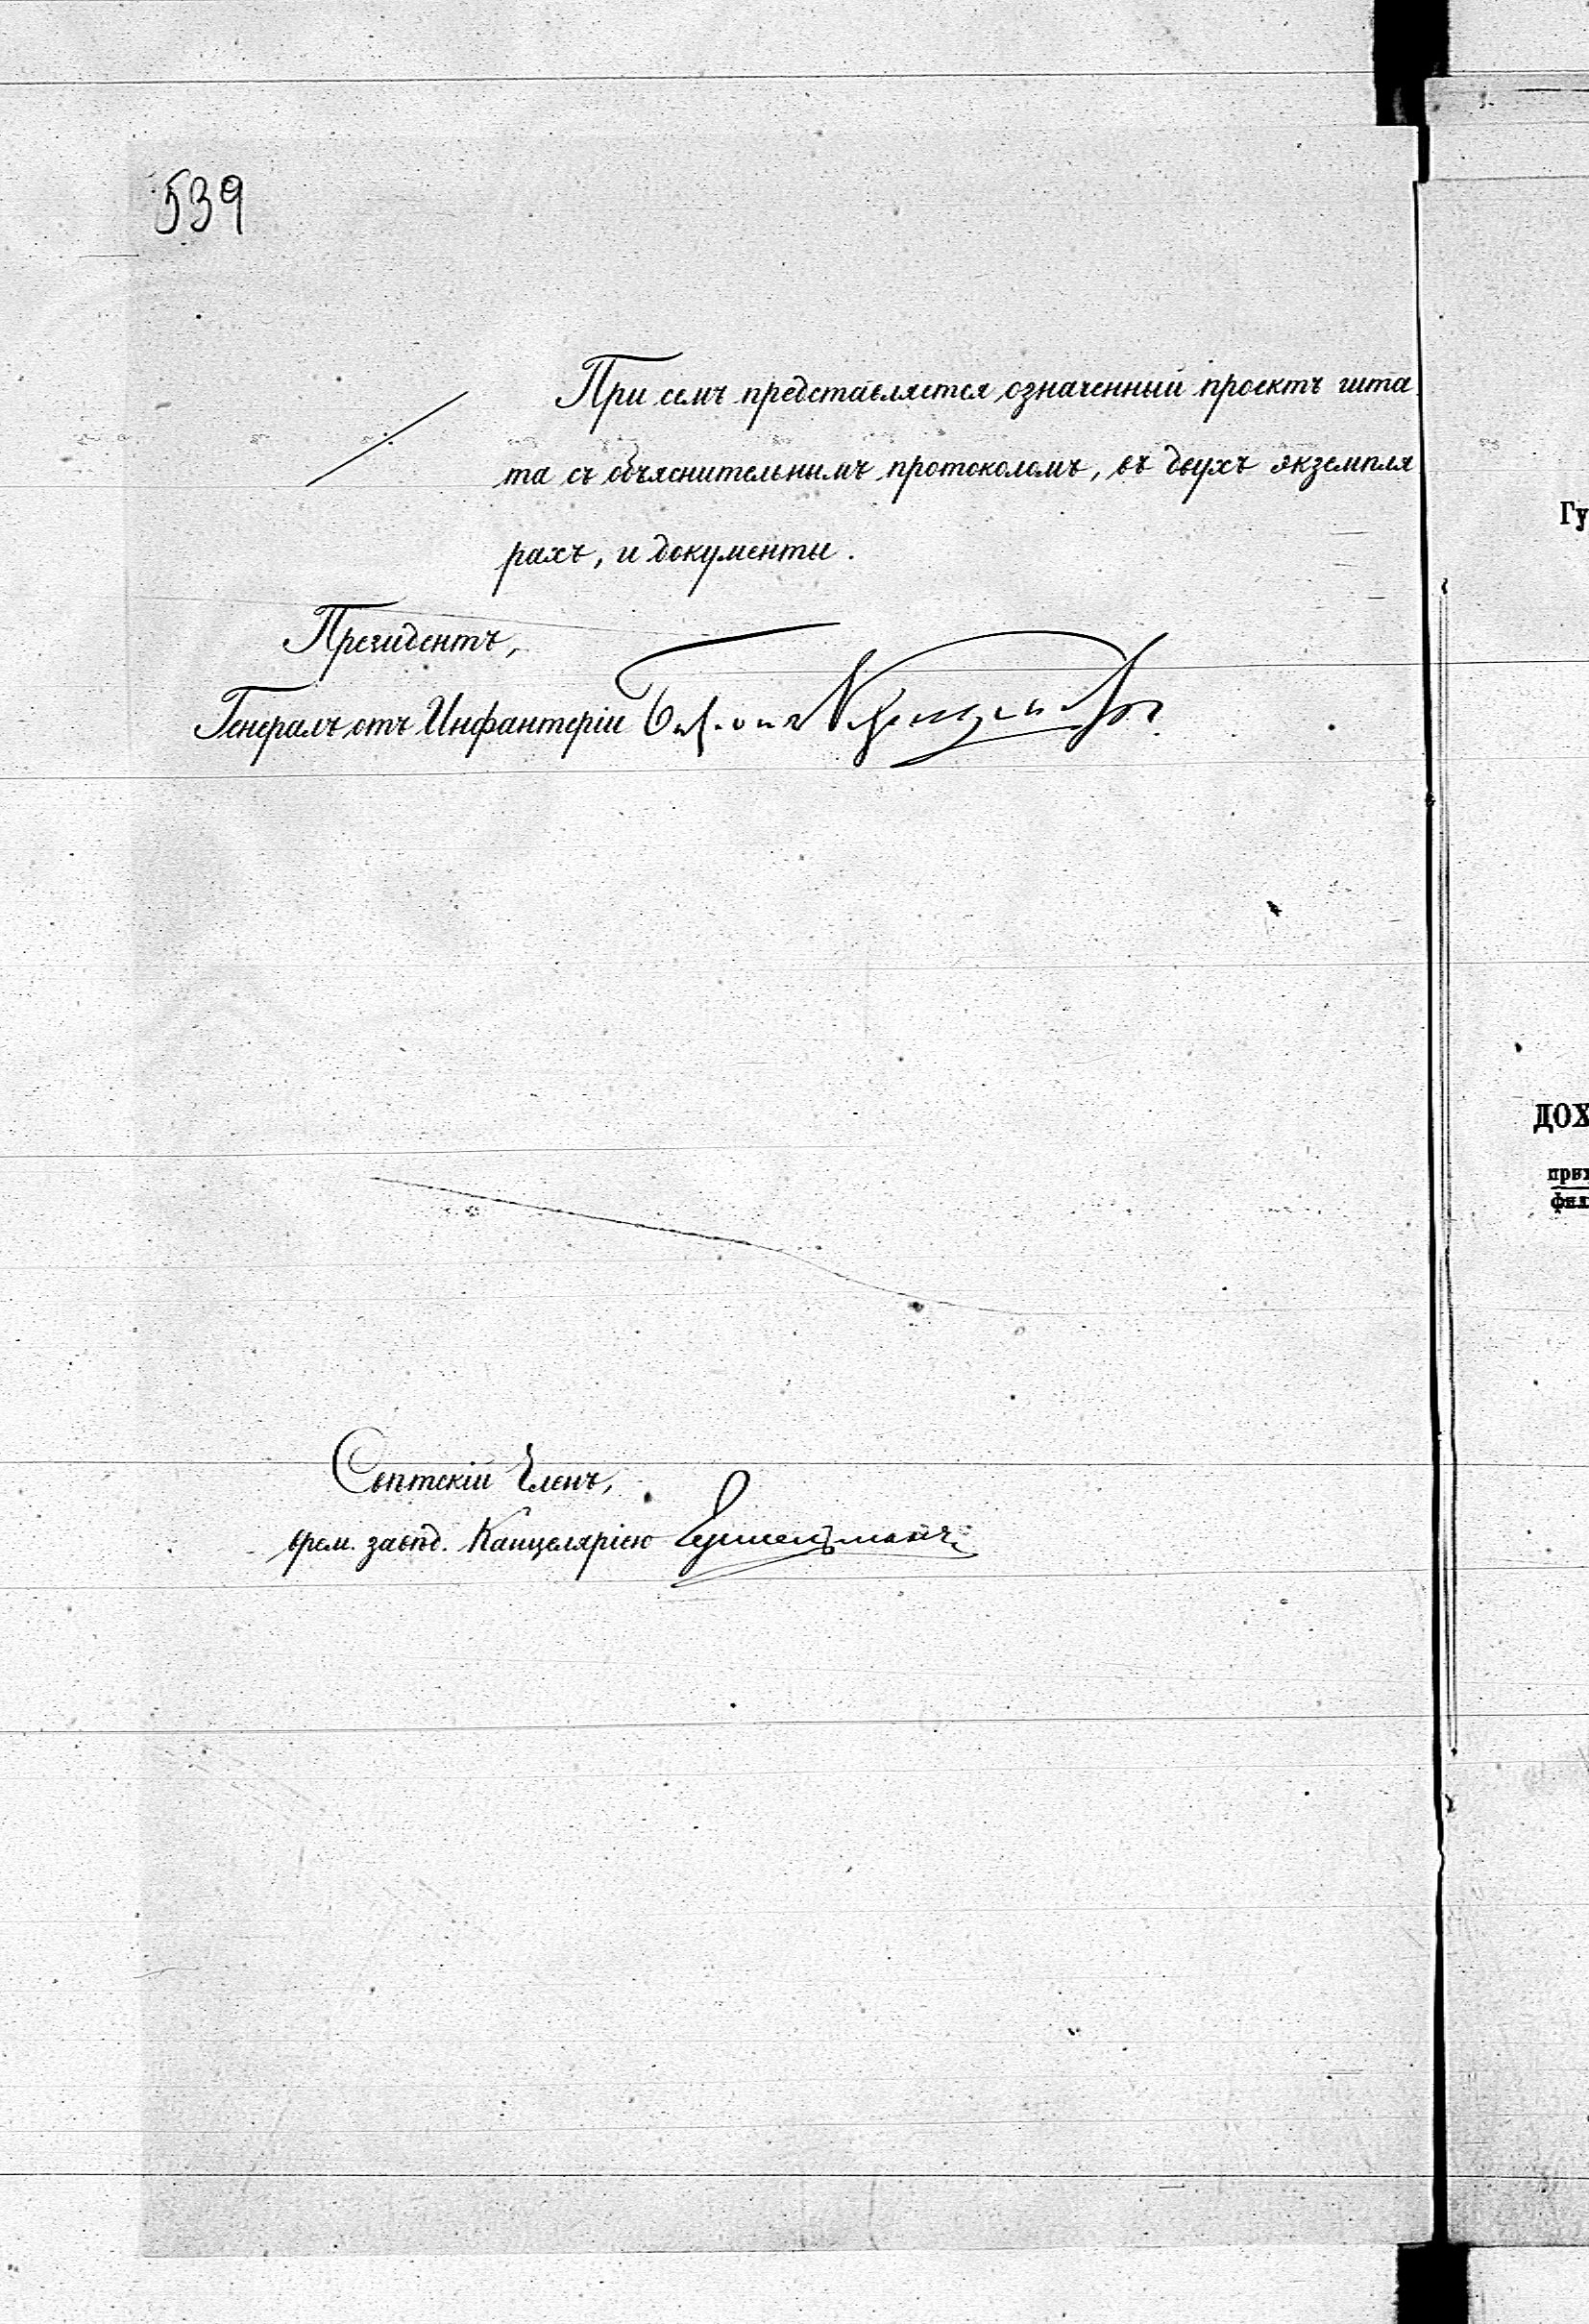 539
При семъ представляется означенный проектъ шта
та съ объяснительнымъ протоколомъ, въ двухъ экземпля
рахъ, и документы.
Президентъ,
Генералъ отъ Инфантеріи Баронъ
Совѣтскій Членъ,
врем. завѣд. Канцеляріею
Гу
ДОХ
прих
фил